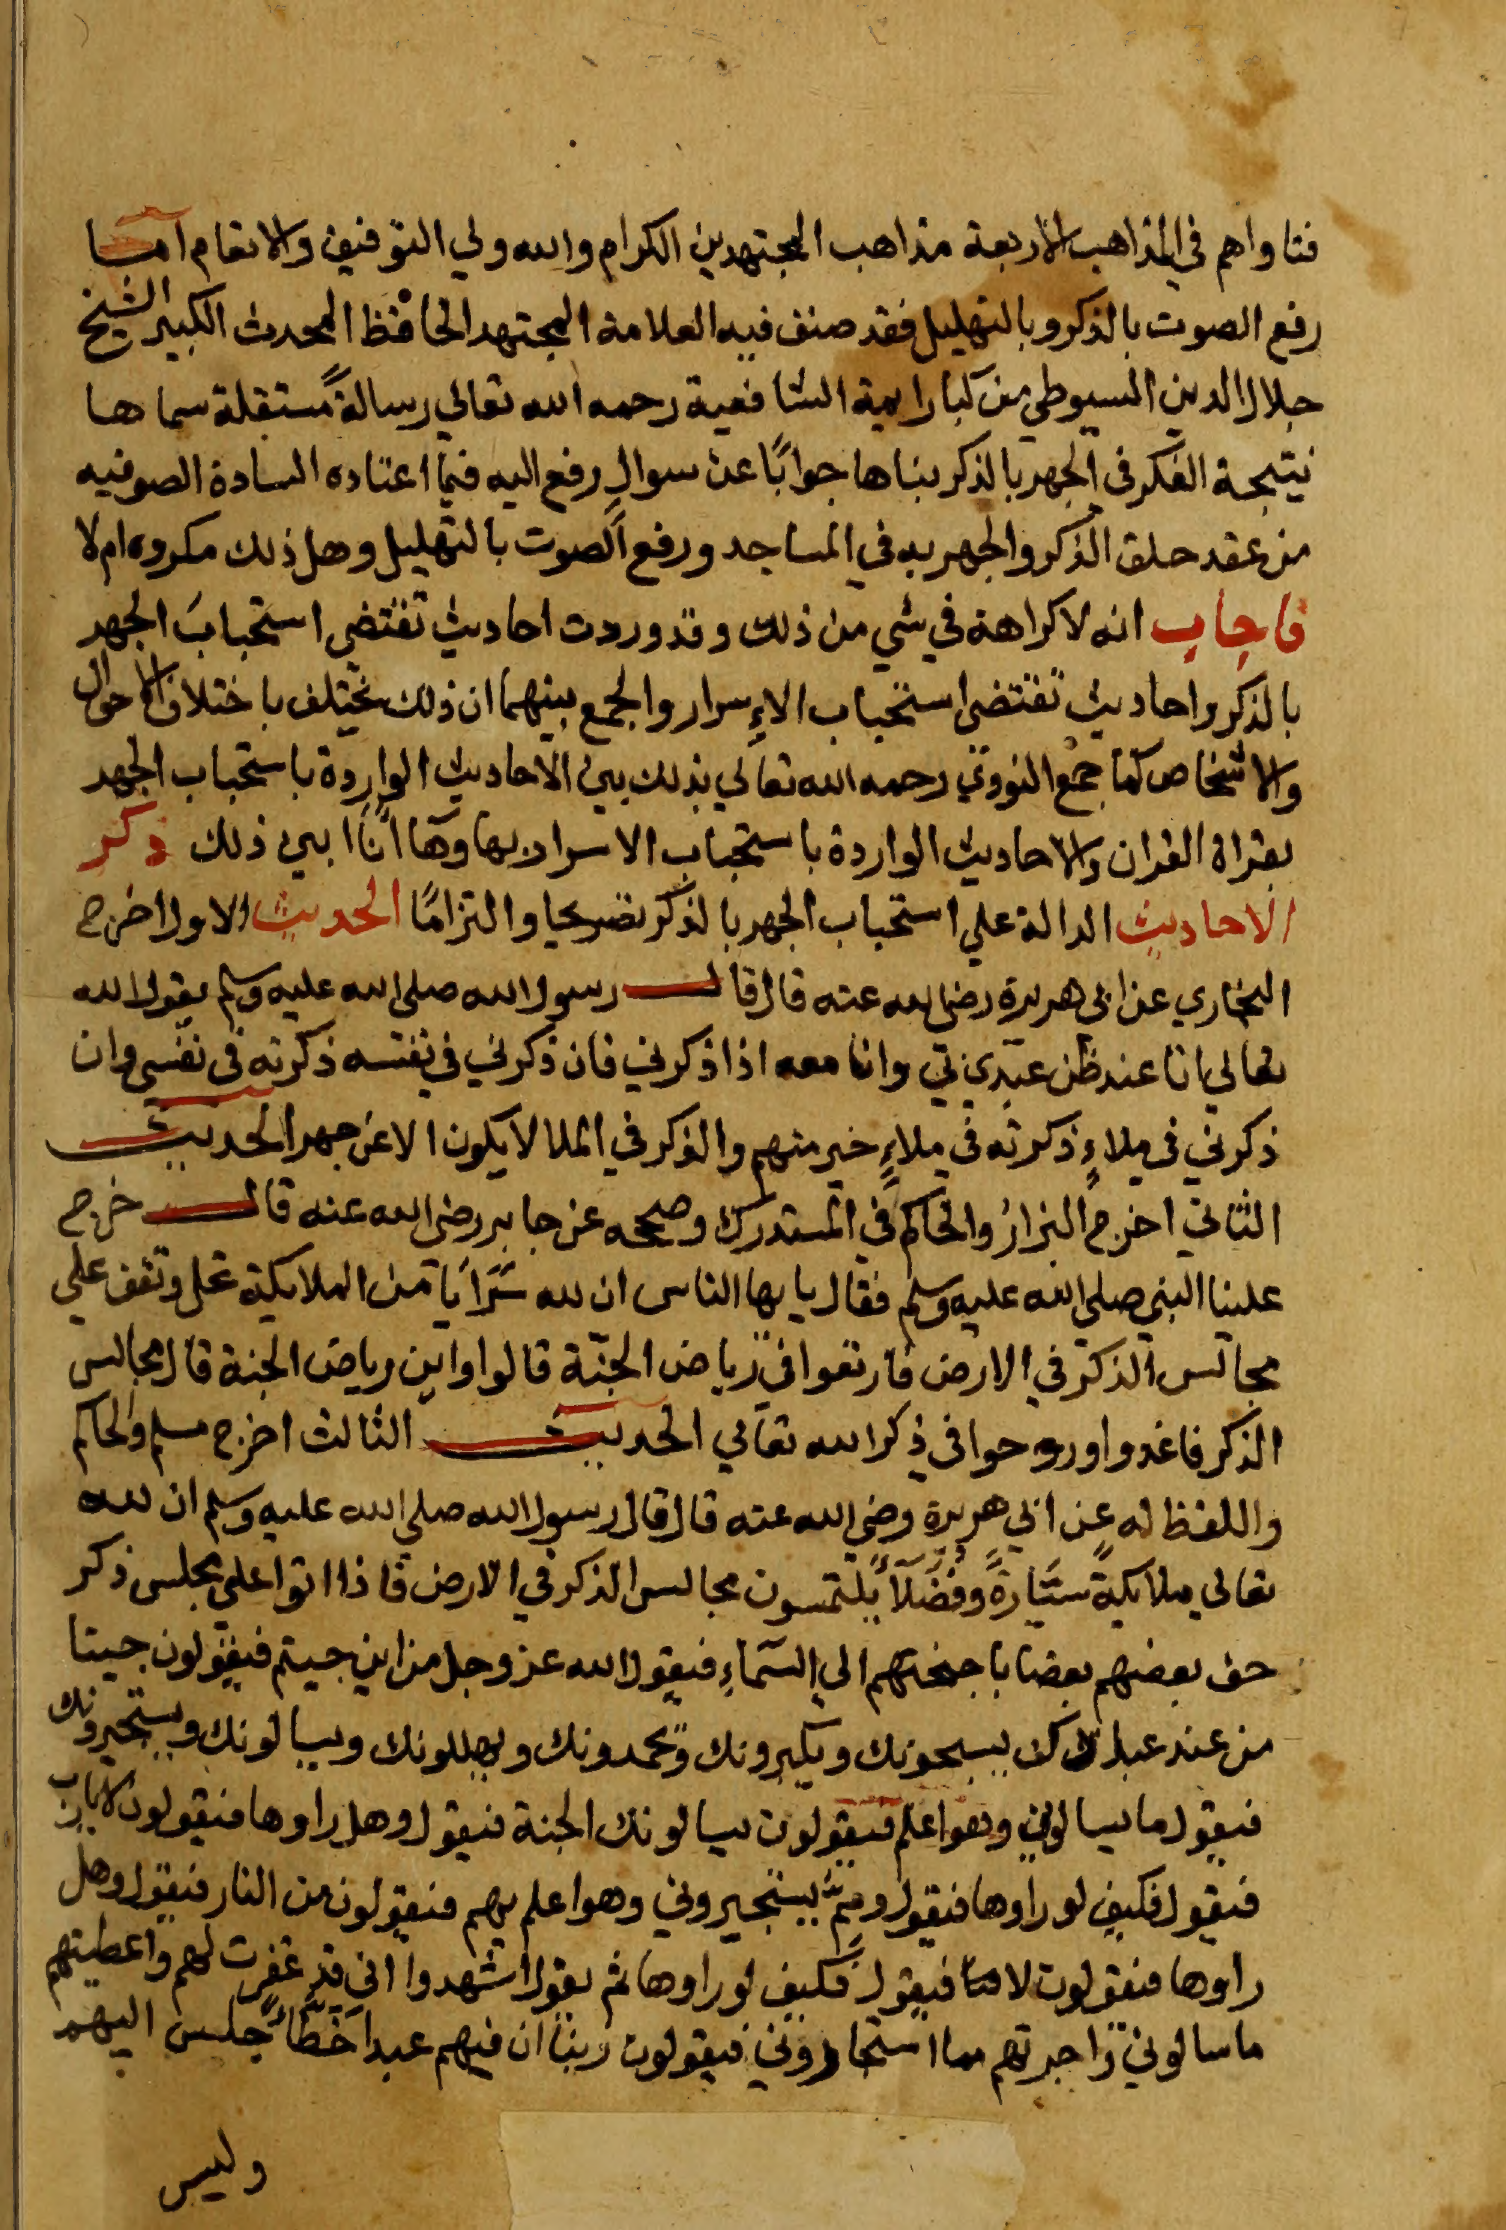 فتاواهم في المذاهب الاربعة مذاهب المجتهدين الكرام والله ولي التوفيق والانعام اما
رفع الصوت بالذكر وبالتهليل فقد صنف فيه العلامة المجتهد الحافظ المحدث الكبير الشيخ
جلال الدين السيوطي من كبار ايمة الشافعية رحمه الله تعالي رسالةً مستقلة سماها
نتيجة الفكر في الجهر بالذكر بناها جوابًا عن سوالٍ رفع اليه فيما اعتاده السادة الصوفيه
من عقد حلق الذكر والجهر به في المساجد ورفع الصوت بالتهليل وهل ذلك مكروه ام لا
فاجاب انه لا كراهة في شي من ذلك وقد وردت احاديث تقتضي استحبابَ الجهر
بالذكر واحاديث تقتضي استحباب الاِسرار والجمع بينهما ان ذلك يختلف باختلاف الاحوال
والاشخاص كما جمع النووي رحمه الله تعالي بذلك بين الاحاديث الواردة باستحباب الجهر
بقراة القران والاحاديث الواردة باستحباب الاسرار بها وها انا ابين ذلك ذكر
الاحاديث الدالة علي استحباب الجهر بالذكر تصريحا والتزامًا الحديث الاول اخرج
البخاري عن ابي هريرة رضي الله عنه قال قال رسول الله صلي الله عليه وسلم يقول الله
تعالي انا عند ظن عبدي بي وانا معه اذا ذكرني فان ذكرني في نفسه ذكرته في نفسي وان
ذكرني في ملاءٍ ذكرته في ملاءٍ خير منهم والذكر في الملا لا يكون الا عن جهر الحديث
الثاني اخرج البزارُ والحاكم في المستدرك وصححه عن جابر رضي الله عنه قال خرج
علينا النبي صلي الله عليه وسلم فقال يايها الناس ان لله سَرَايَا من الملايكة تحل وتقف علي
مجالس الذكر في الارض فارتعوا في رياض الجنّة قالوا واين رياض الجنة قال مجالس
الذكر فاغدوا وروحوا في ذكر الله تعالي الحديث الثالث اخرج مسلم والحاكم
واللفظ له عن ابي هريرة رضي الله عنه قال قال رسول الله صلي الله عليه وسلم ان لله
تعالي ملايكةً سَيَّارةً وفُضَلاءً يلتمسون مجالس الذكر في الارض فاذا اتوا علي مجلس ذكر
حف بعضهم بعضا باجنحتهم الي السَّماءِ فيقول الله عز وجل من اين جيتم فيقولون جينا
من عند عبادك يسبحونك ويكبرونك ويحمدونك ويهللونك ويسالونك ويستجيرونك
فيقول ما يسالوني وهو اعلم فيقولون يسالونك الجنة فيقول وهل راوها فيقولون لا يارب
فيقول فكيف لو راوها فيقول ومِمَّ يستجيروني وهو اعلم بهم فيقولون من النار فيقول وهل
راوها فيقولون لا فيقول فكيف لو راوها ثم يقول اشهدوا اني قد غفرت لهم واعطيتهم
ما سالوني واجرتهم مما استجاروني فيقولون ربنا ان فيهم عبدا خَطَّاءً جلس اليهم
وليس